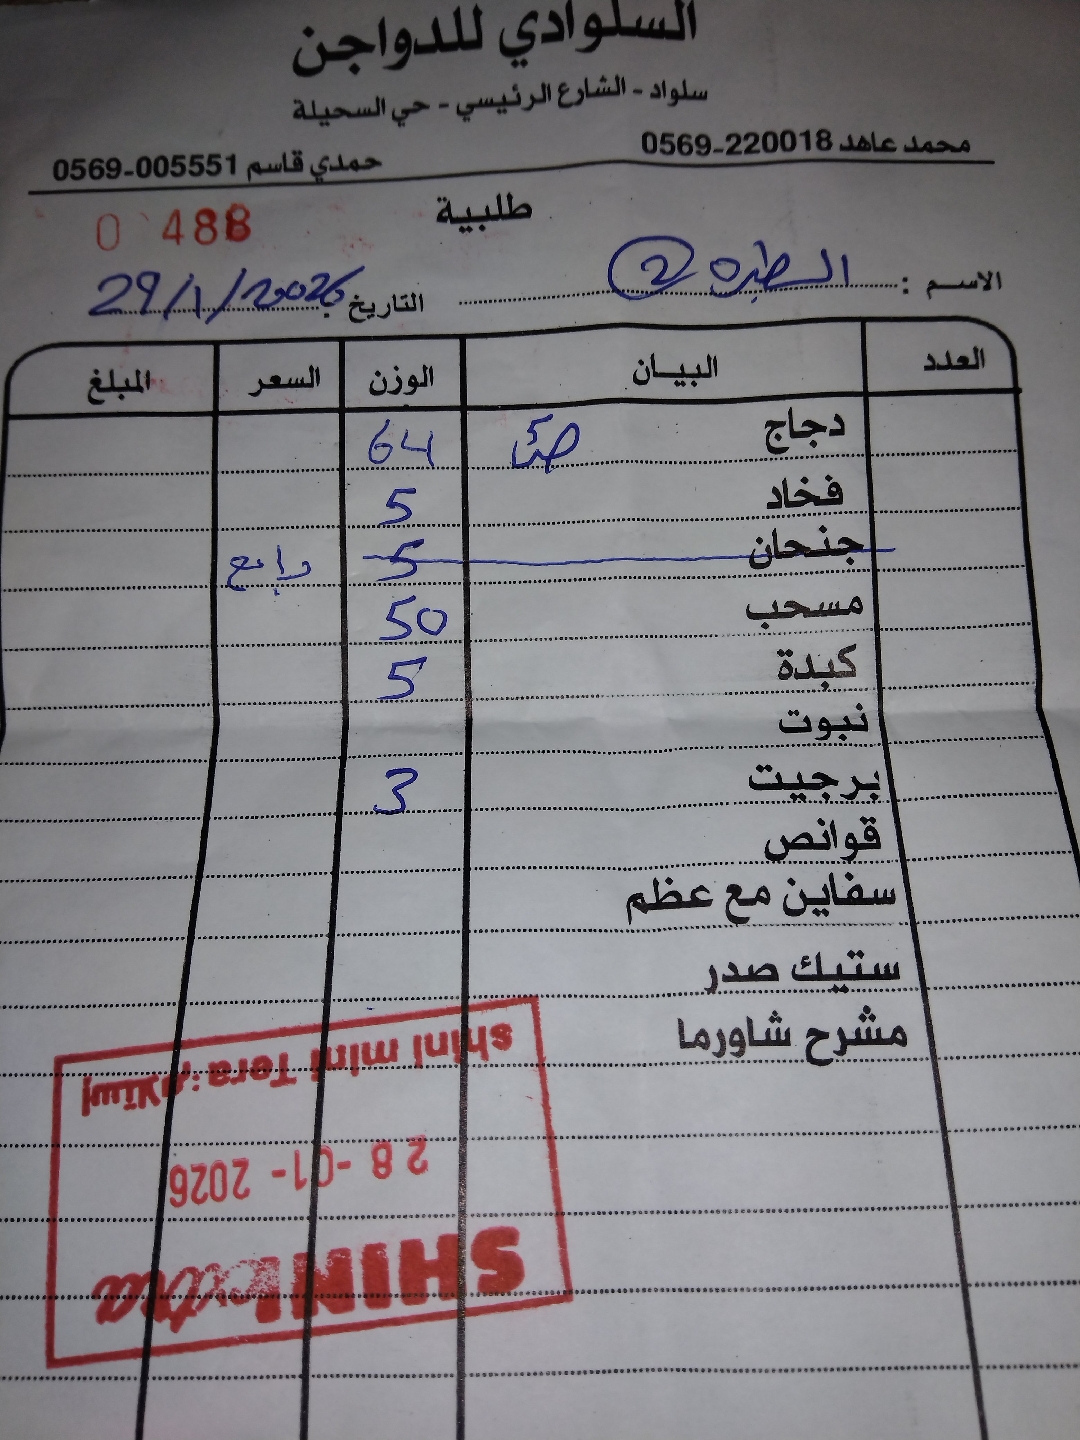 السلوادي للدواجن
سلواد - الشارع الرئيسي - حي السحيلة
محمد عاهد 0569-220018 حمدي قاسم 0569-005551
طلبية
0 488
الاسم : الطيره 2
التاريخ 29/1/2026
العدد البيان الوزن السعر المبلغ
دجاج 64
فخاد 5
جنحان 5 راجع
مسحب 50
كبدة 5
نبوت
برجيت 3
قوانص
سفاين مع عظم
ستيك صدر
مشرح شاورما
SHINI extra
28-01-2026
إستلام: shini mini Tera